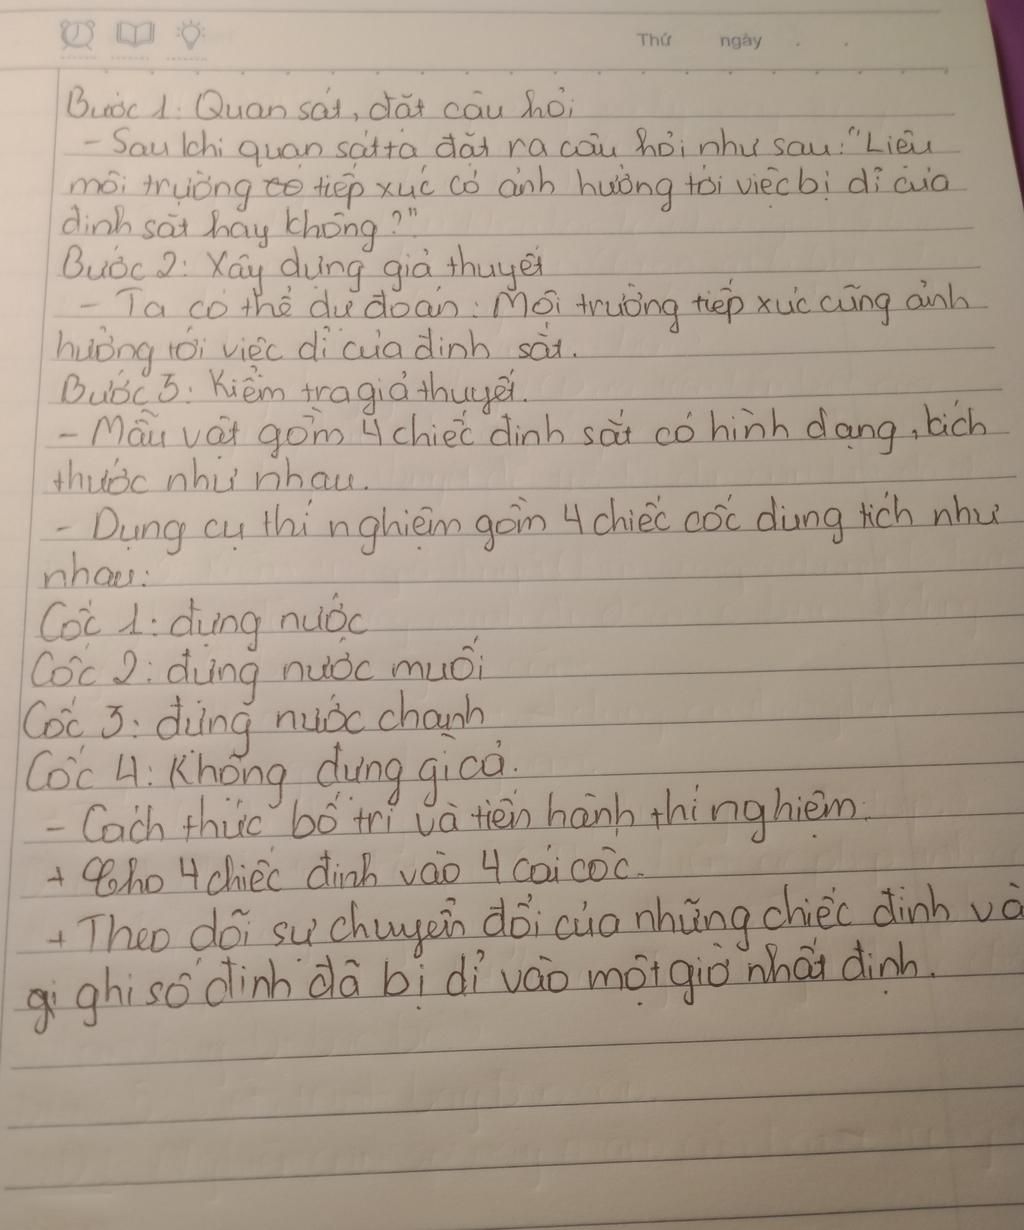 Thứ ngày . .
Bước 1: Quan sát, đặt câu hỏi
- Sau khi quan sát ta đặt ra câu hỏi như sau: "Liệu
môi trường có tiếp xúc có ảnh hưởng tới việc bị dỉ của
đinh sắt hay không?"
Bước 2: Xây dựng giả thuyết
- Ta có thể dự đoán: Môi trường tiếp xúc cũng ảnh
hưởng tới việc dỉ của đinh sắt.
Bước 3: Kiểm tra giả thuyết.
- Mẫu vật gồm 4 chiếc đinh sắt có hình dạng, kích
thước như nhau.
- Dụng cụ thí nghiệm gồm 4 chiếc cốc dung tích như
nhau:
Cốc 1: đựng nước
Cốc 2: đựng nước muối
Cốc 3: đựng nước chanh
Cốc 4: Không đựng gì cả.
- Cách thức bố trí và tiến hành thí nghiệm:
+ Cho 4 chiếc đinh vào 4 cái cốc.
+ Theo dõi sự chuyển đổi của những chiếc đinh và
gi ghi số đinh đã bị dỉ vào một giờ nhất định.